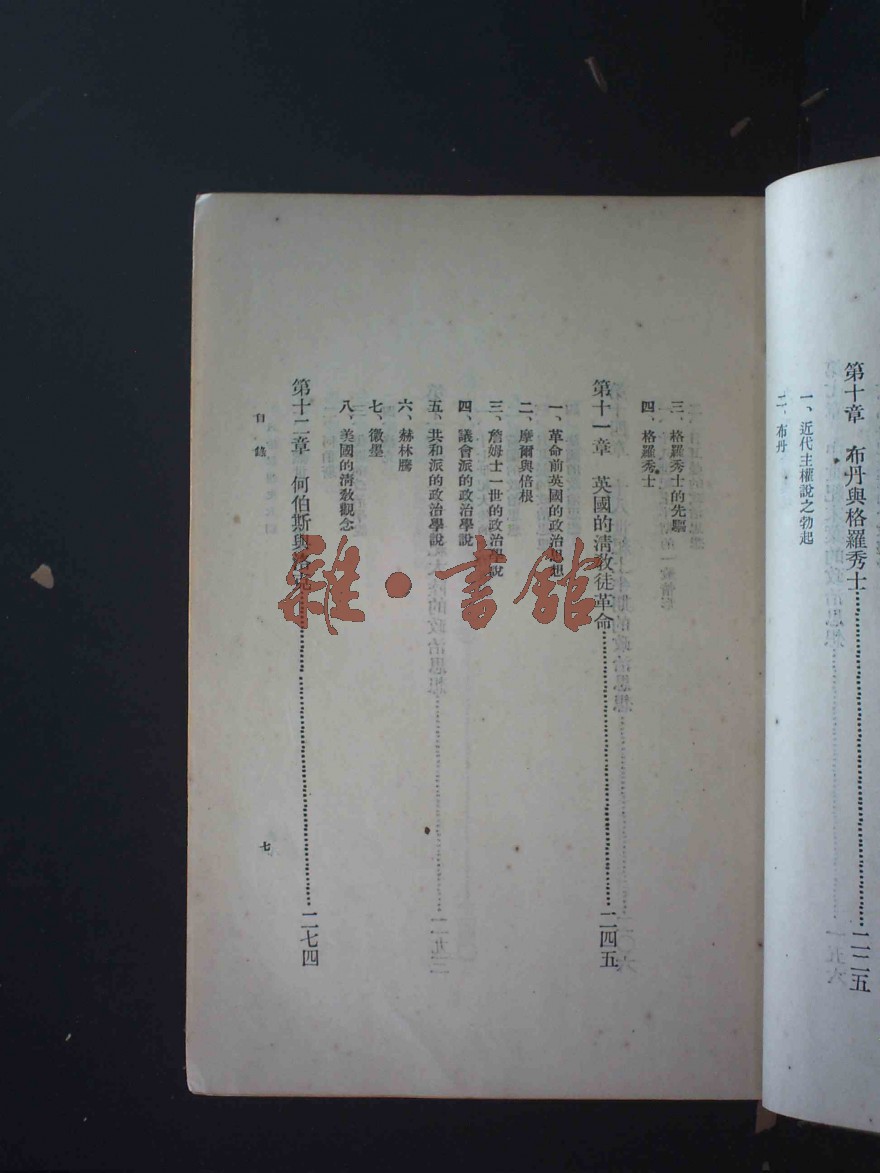 第十章 布丹與格羅秀士……二二五
一、近代主權說之勃起
二、布丹
三、格羅秀士的先驅
四、格羅秀士
第十一章 英國的清教徒革命……二四五
一、革命前英國的政治思想
二、摩爾與倍根
三、詹姆士一世的政治學說
四、議會派的政治學說
五、共和派的政治學說
六、赫林騰
七、徽墨
八、美國的清教觀念
第十二章 何伯斯與洛克……二七四
目錄
七
雜·書館